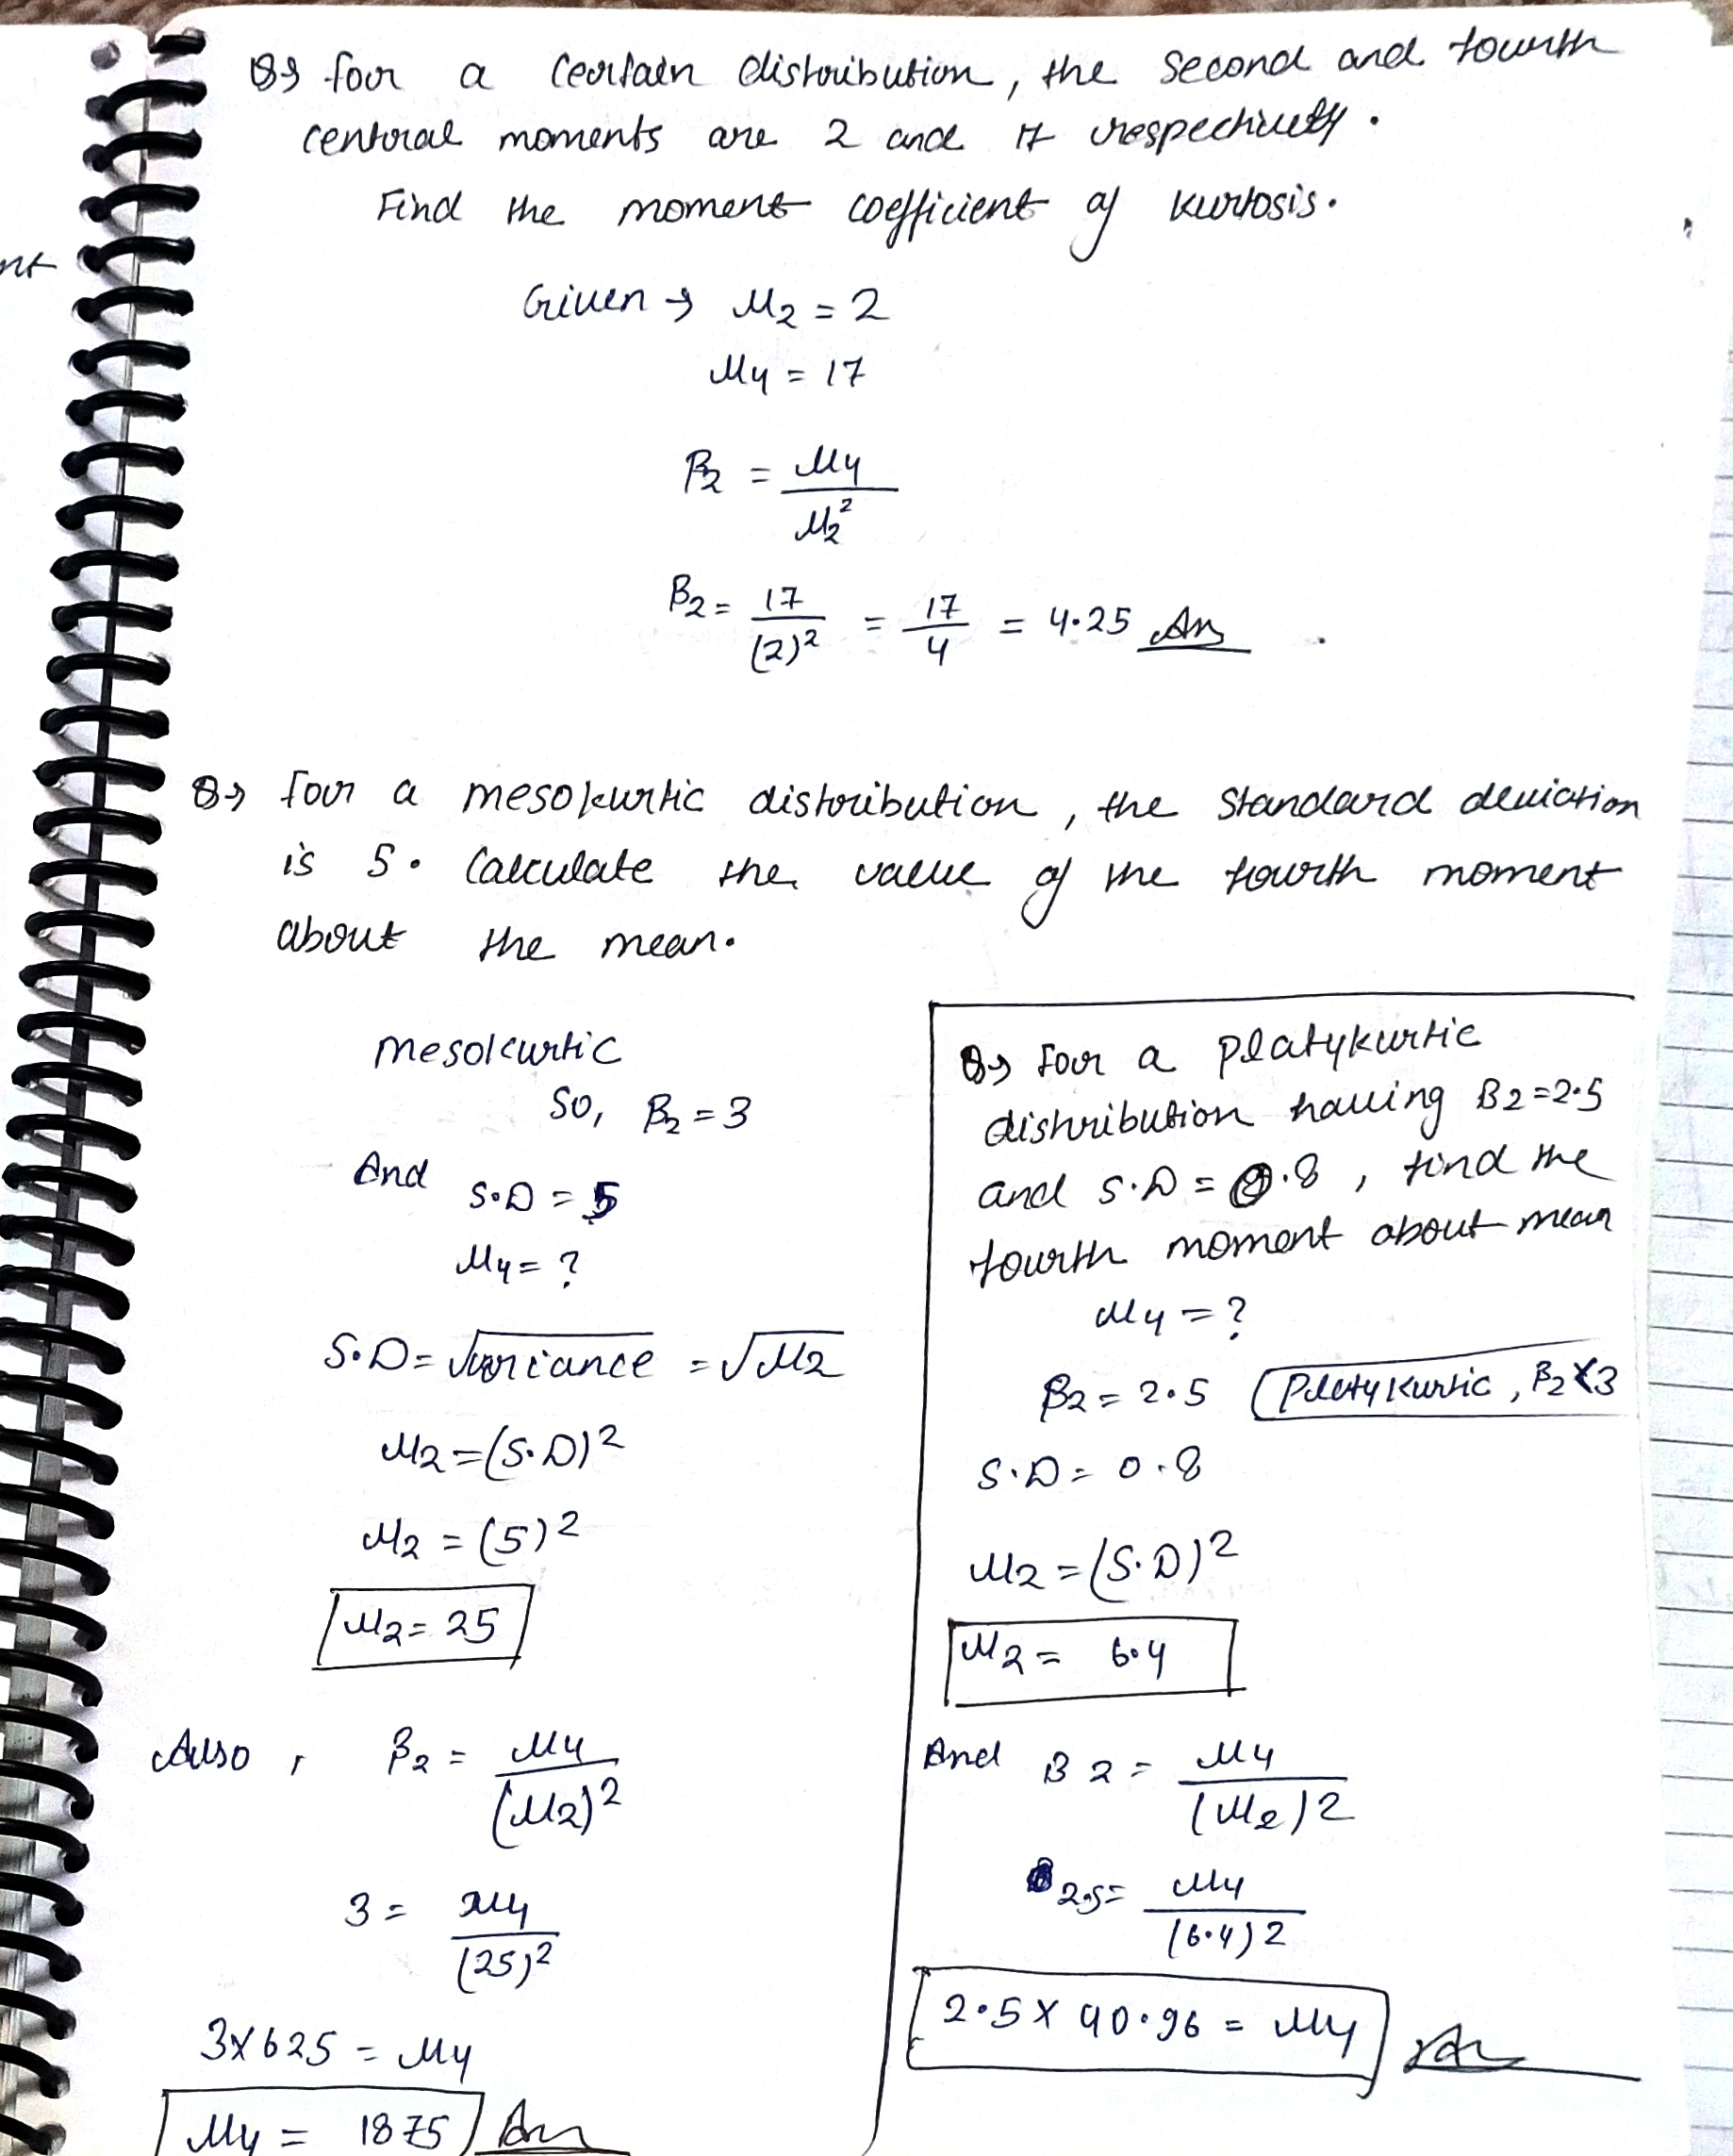 Q→ for a certain distribution, the second and fourth
central moments are 2 and 17 respectively.
Find the moment coefficient of kurtosis.
Given → μ2 = 2
μ4 = 17
β2 = μ4 / μ2²
β2 = 17/(2)² = 17/4 = 4.25 Ans
Q→ for a mesokurtic distribution, the standard deviation
is 5. Calculate the value of the fourth moment
about the mean.
mesokurtic
So, β2 = 3
And S.D = 5
μ4 = ?
S.D = √variance = √μ2
μ2 = (S.D)²
μ2 = (5)²
μ2 = 25
Also, β2 = μ4 / (μ2)²
3 = μ4 / (25)²
3 × 625 = μ4
μ4 = 1875 Ans
Q→ For a platykurtic
distribution having β2 = 2.5
and S.D = 0.8, find the
fourth moment about mean
μ4 = ?
β2 = 2.5 Platykurtic, β2 < 3
S.D = 0.8
μ2 = (S.D)²
μ2 = 6.4
And β2 = μ4 / (μ2)2
2.5 = μ4 / (6.4)2
2.5 × 40.96 = μ4 An